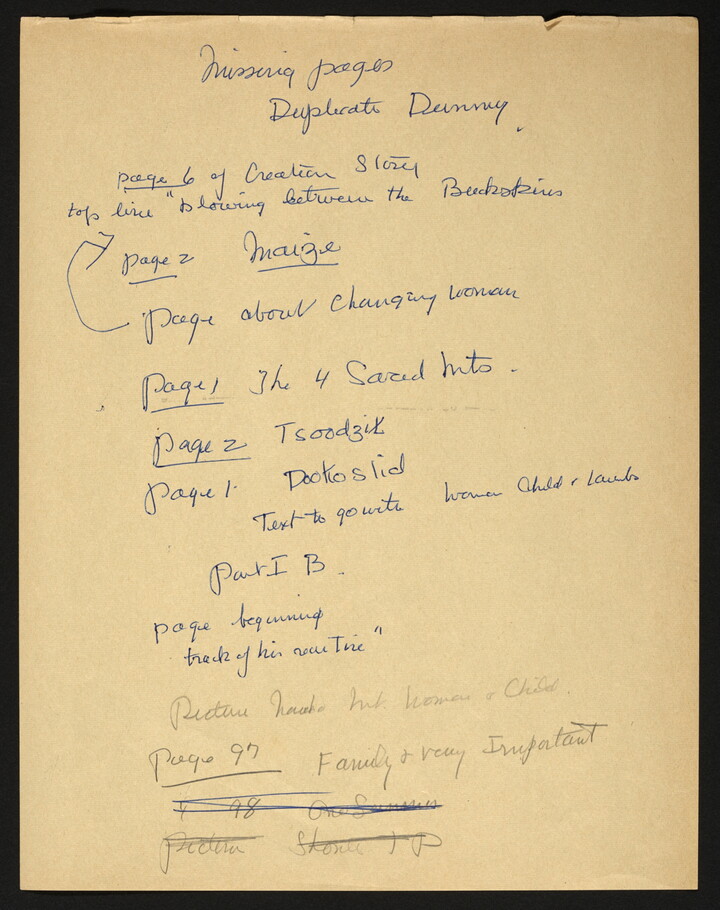 Missing pages
Duplicate Dummy
page 6 of Creation Story
top line "blowing between the Buckskins
page 2 Maize
page about Changing Woman
page 1 The 4 Sacred Mts.
page 2 Tsoodzil
page 1. Dookoslid
Text to go with Woman Child & Lambs
Part I B.
page beginning
track of his
Picture Mt. Woman & Child.
Page 97 Family & very Important
98 One Summer
Picture